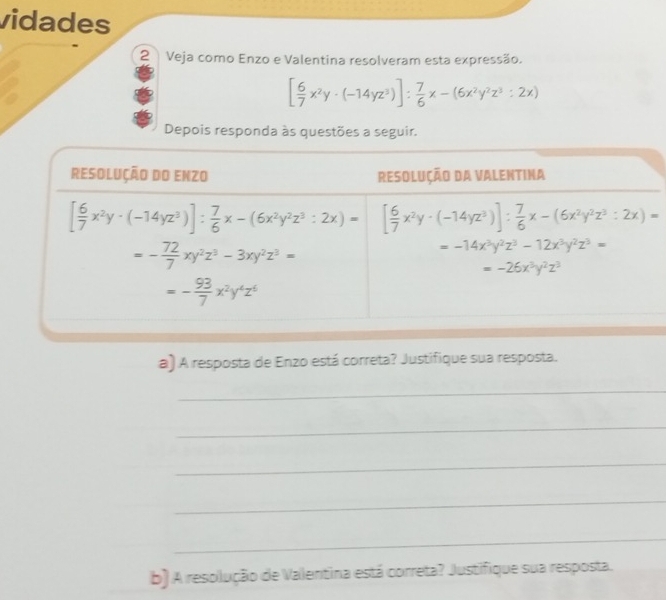 vidades
2 Veja como Enzo e Valentina resolveram esta expressão.
[6/7 x²y · (−14yz³)] : 7/6 x − (6x²y²z³ : 2x)
Depois responda às questões a seguir.
RESOLUÇÃO DO ENZO
[6/7 x²y · (−14yz³)] : 7/6 x − (6x²y²z³ : 2x) =
= − 72/7 xy²z³ − 3xy²z³ =
= − 93/7 x²y⁴z⁶
RESOLUÇÃO DA VALENTINA
[6/7 x²y · (−14yz³)] : 7/6 x − (6x²y²z³ : 2x) =
= −14x³y²z³ − 12x³y²z³ =
= −26x³y²z³
a) A resposta de Enzo está correta? Justifique sua resposta.
b) A resolução de Valentina está correta? Justifique sua resposta.